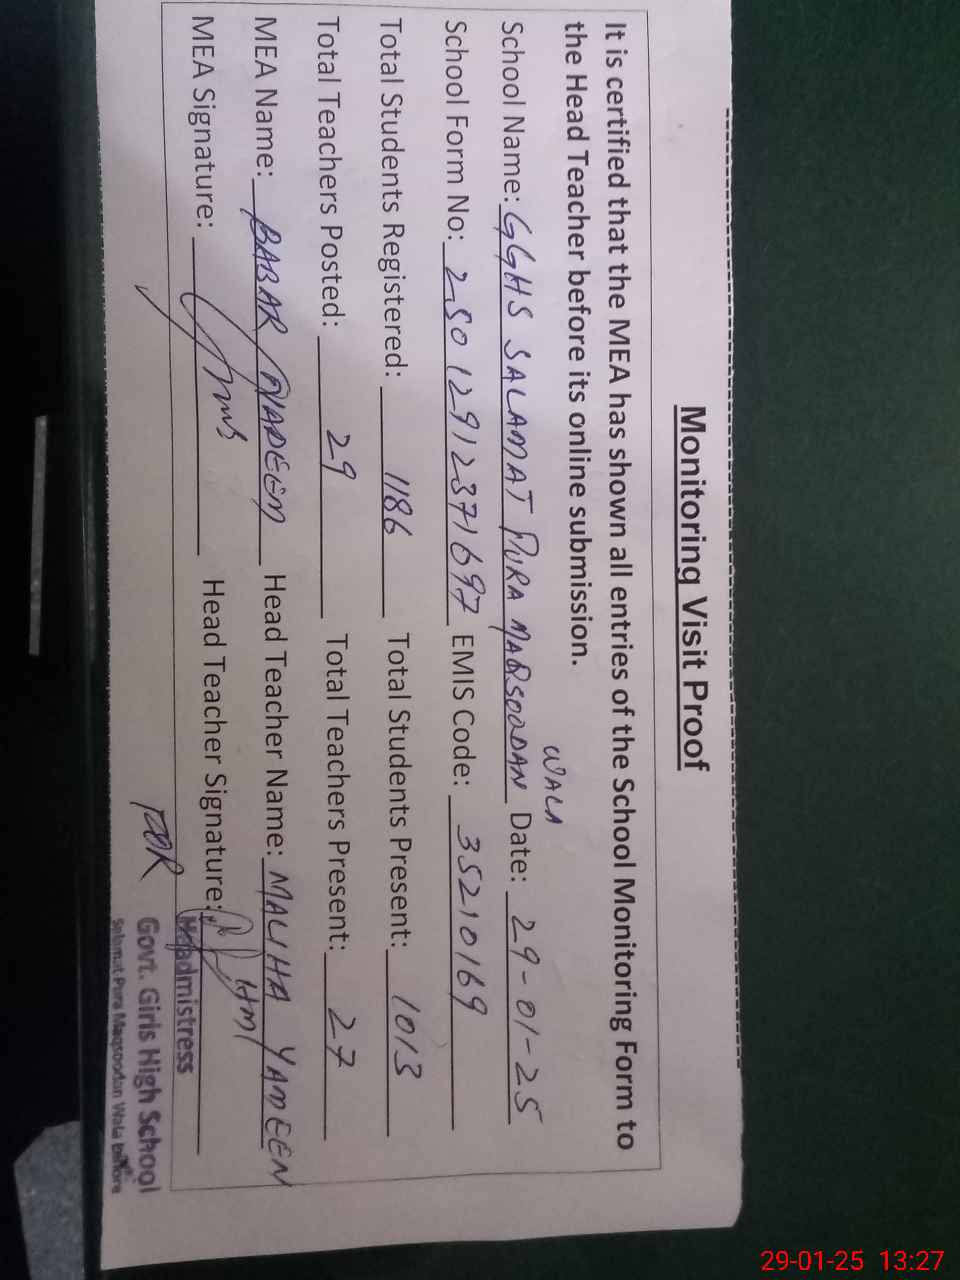 Monitoring Visit Proof
It is certified that the MEA has shown all entries of the School Monitoring Form to
the Head Teacher before its online submission.
WALA
School Name: GGHS SALAMAT PURA MAQSOODAN Date: 29-01-25
School Form No: 25012912371697 EMIS Code: 35210169
Total Students Registered: 1186 Total Students Present: 1013
Total Teachers Posted: 29 Total Teachers Present: 27
MEA Name: BABAR NADEEM Head Teacher Name: MALIHA YAMEEN
MEA Signature: Head Teacher Signature:
HM
FOR
Headmistress
Govt. Girls High School
Salamat Pura Maqsoodan Wala Lahore
29-01-25 13:27